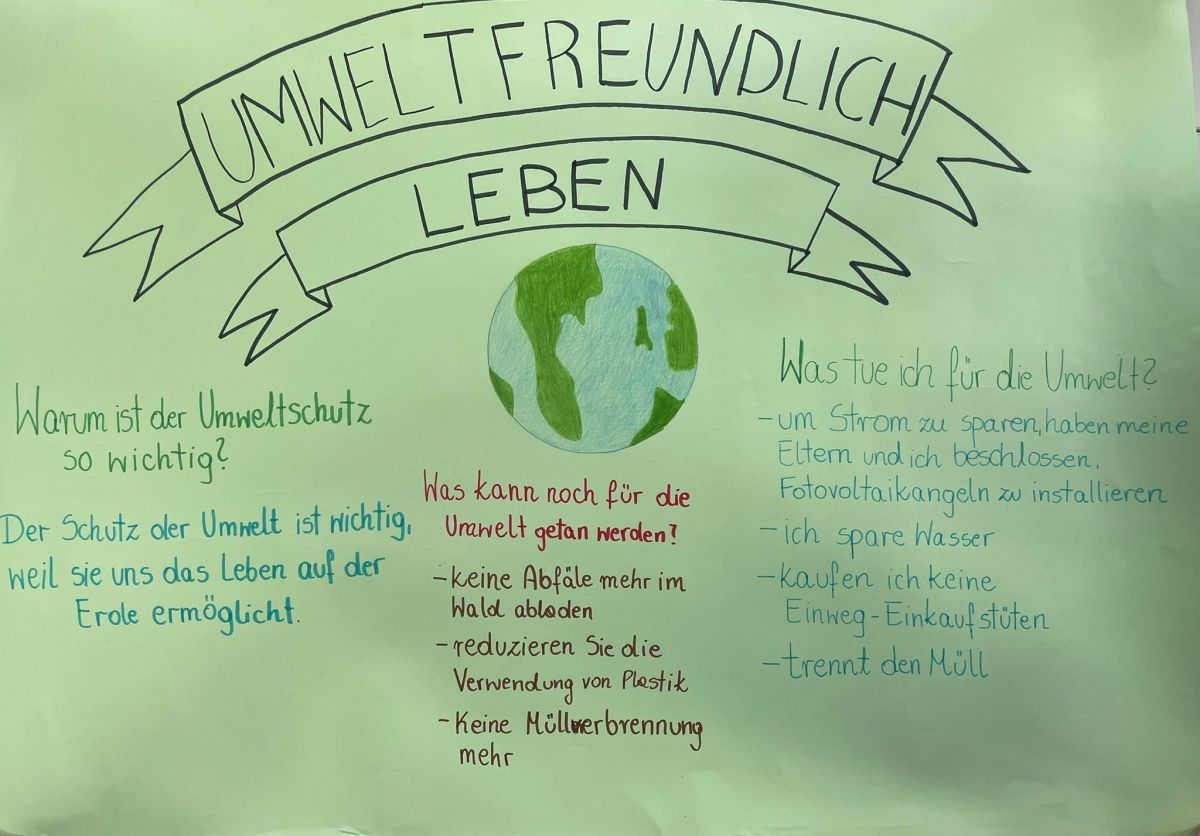 UMWELTFREUNDLICH
LEBEN
Warum ist der Umweltschutz
so wichtig?
Der Schutz der Umwelt ist wichtig,
weil sie uns das Leben auf der
Erde ermöglicht.
Was kann noch für die
Umwelt getan werden?
-keine Abfäle mehr im
Wald abladen
-reduzieren Sie die
Verwendung von Plastik
-Keine Müllverbrennung
mehr
Was tue ich für die Umwelt?
-um Strom zu sparen, haben meine
Eltern und ich beschlossen,
Fotovoltaikangeln zu installieren
-ich spare Wasser
-kaufen ich keine
Einweg-Einkaufstüten
-trennt den Müll